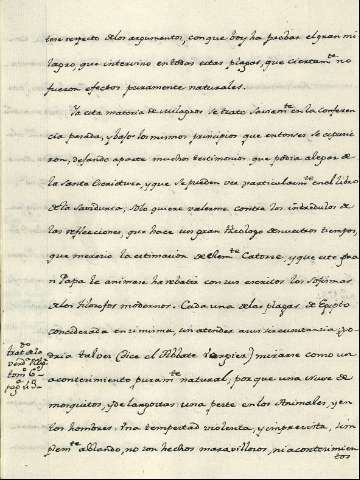 tese respeto de los argumentos, con que boy ha probar el gran mi
lagro, que intervino en todas estas plagas, que ciertamte no
fueron efectos puramente naturales.
Ya esta materia de milagros se trato en la conferen
cia pasada, y bajo los mismos principios que entonses se expusie
ron, dejando aparte muchos testimonios que podria alegar de
la Santa Escritura, y que se pueden ver particularmte en el libro
de la Saviduria, solo quiero valerme contra los incredulos de
las reflecciones, que hace un gran Theologo de nuestros tiempos,
que merecio la estimacion de Clemte Catorse, y que este gra
n Papa le animase ha rebatir con sus escritos los sofismas
de los filosofos modernos. Cada una de las plagas de Egypto
considerada en si misma, sin atender a sus circunstancias, po
dria talves (dice el Abbate) mirarse como un
acontecimiento puramte natural, porque una nuve de
mosquitos, y de langostas: una peste en los Animales, y en
los hombres: una tempestad violenta, y imprevista, sim
plemte ablando, no son hechos maravillosos, ni acontecimien
tos
trat. de la
verda Relig.
tom. 6
pag. 43